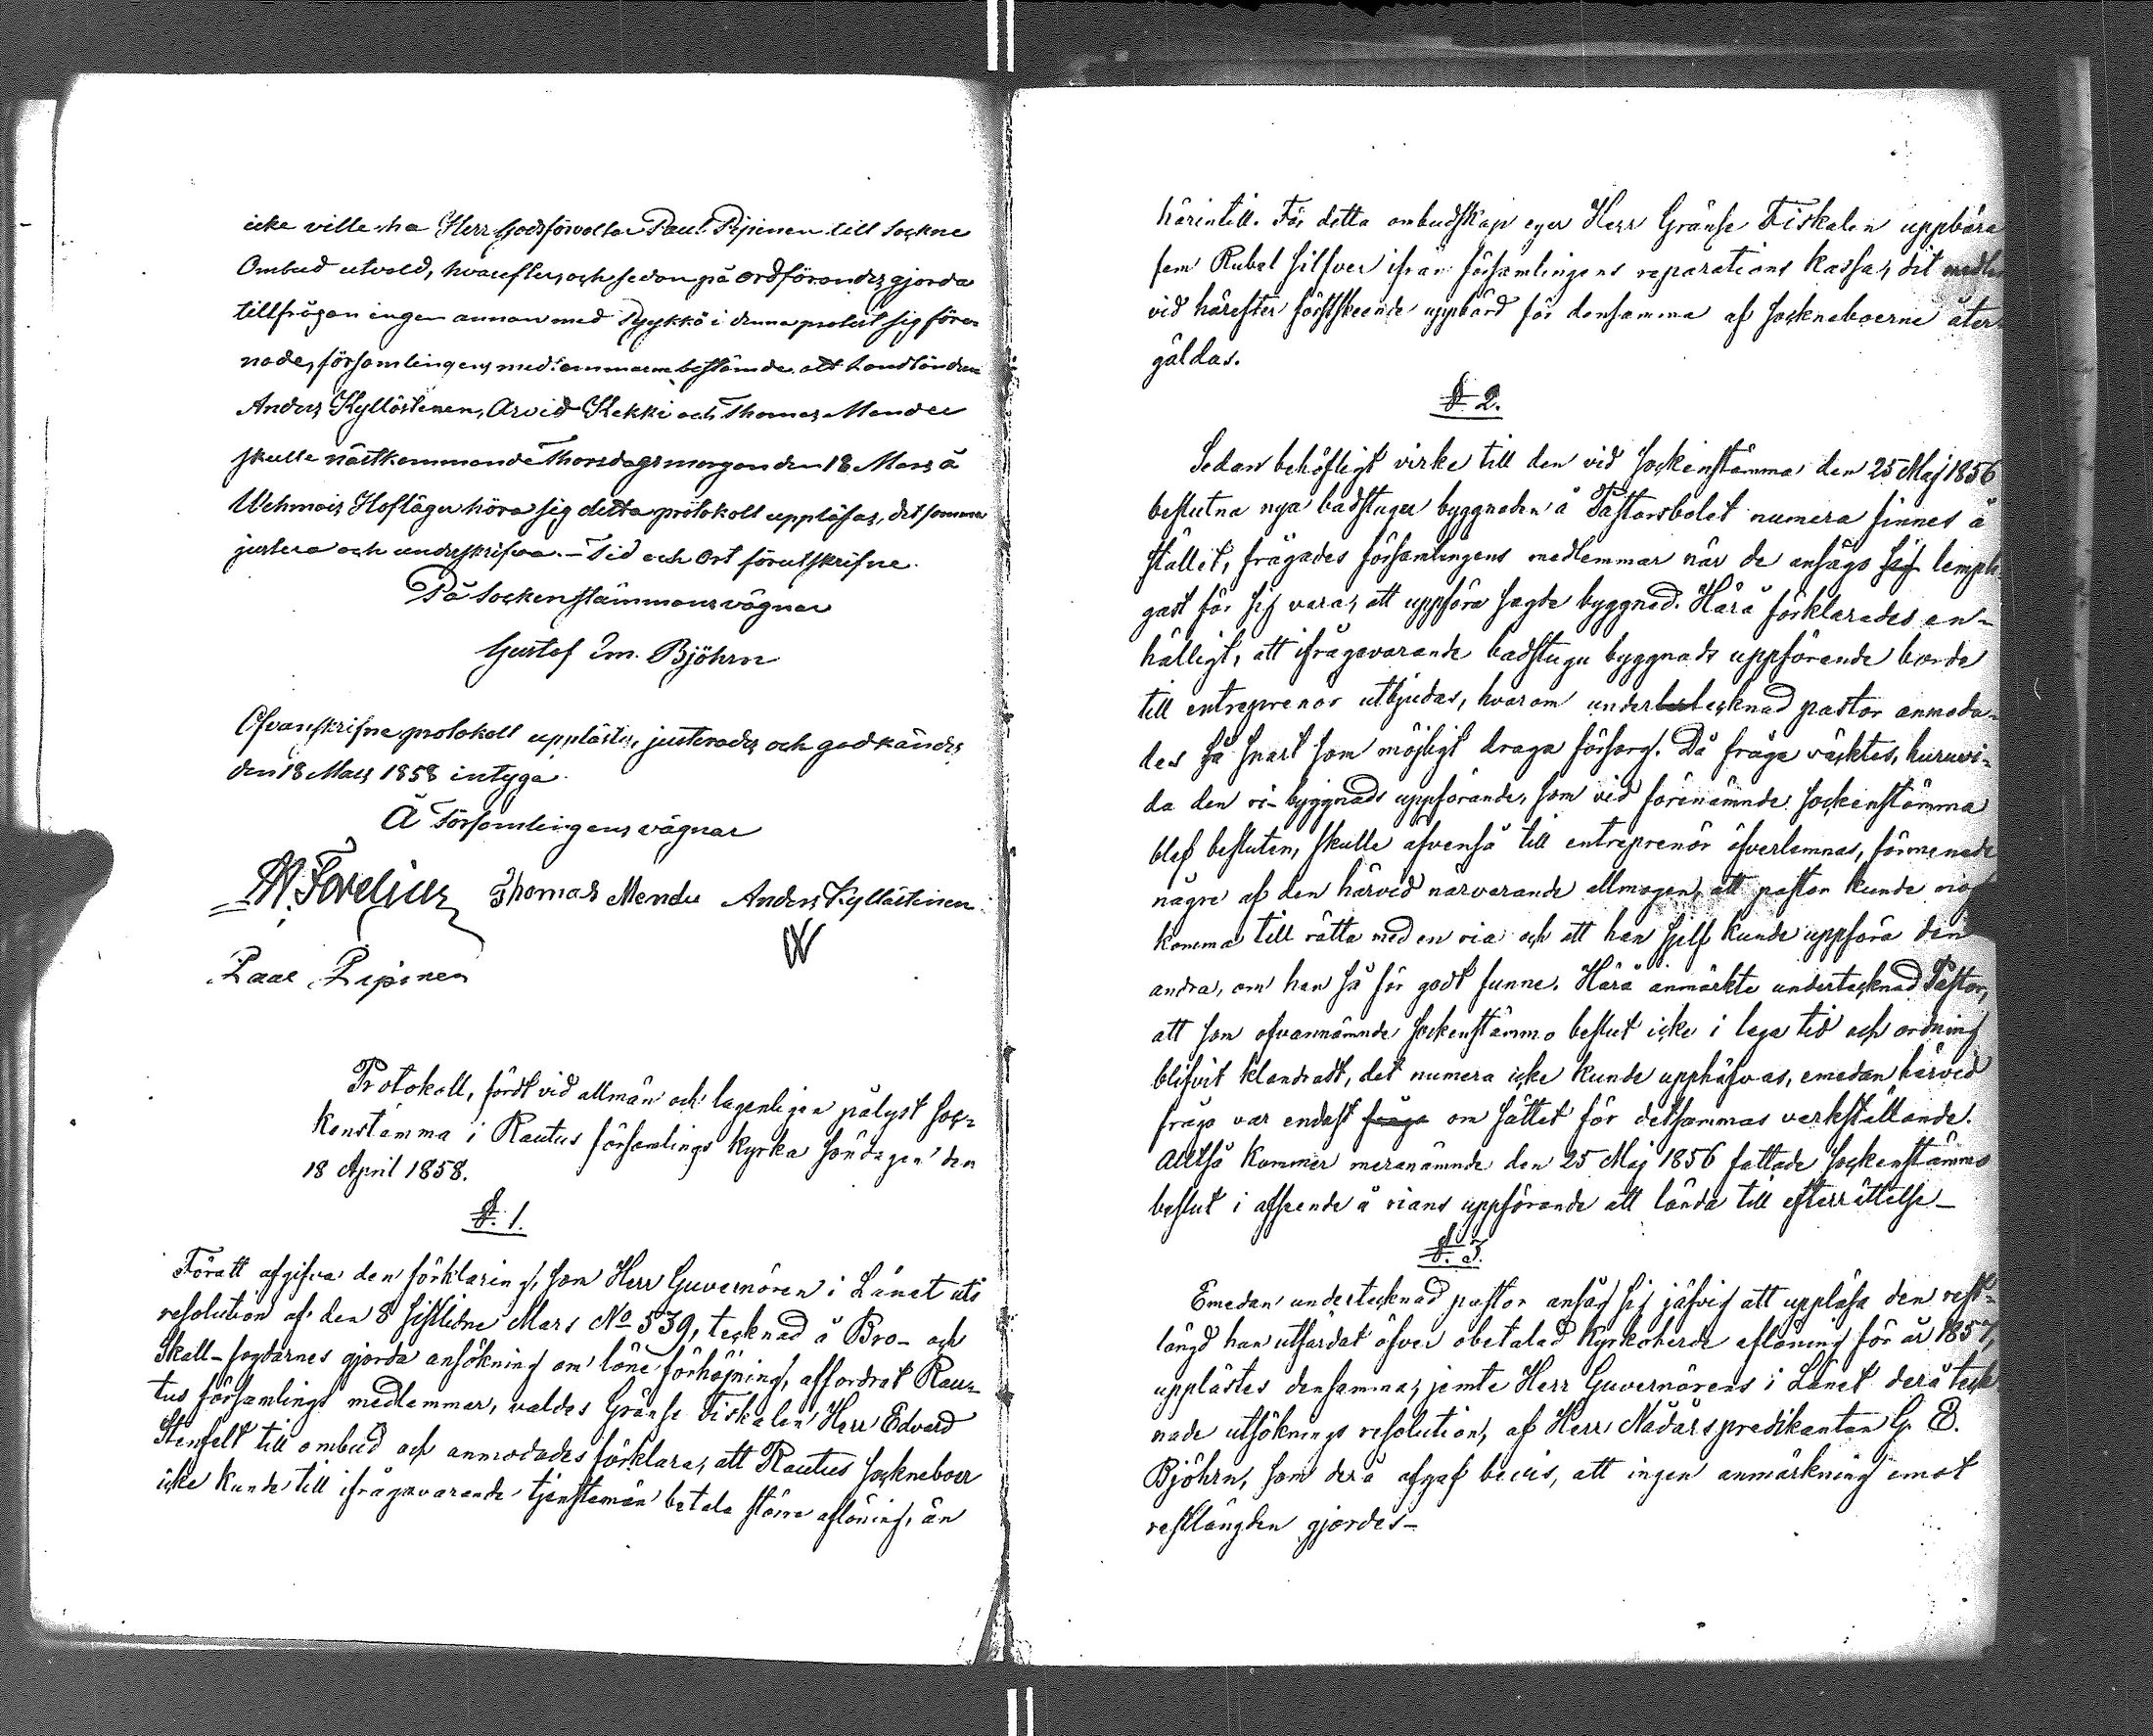 icke ville ha Herr Godsförvaltar Paul Pipinen till Sockne
Ombud utvald, hvarefter, och sedan på ordförandes gjorda
tillfrågan ingen annan med Pyykkö i denna protest sig före-
nade, församlingens medlemmarne bestämde att Landbönderne
Anders Kyllästinen, Arvid Kekki och Thomas Mendu
skulle nästkommande Thorsdagsmorgon den 18 Mars å
Wehmais Hofläger höra sig detta protokoll uppläsas, det samma
justera och underskrifva. – Tid och Ort förutskrifne.
På Sockenstämmans vägnar
Gustaf Em. Björhn
Ofvanskrifne protokoll upplästes, justerades och godkändes
den 18 Mars 1858 intyga
Å Församlingens vägnar
Thomas Mendu Anders Kyllästinen
Paul Pipinen
Protokoll, fördt vid allmän och lagenligen pålyst Soc-
kenstämma i Rautus församlings kyrka Söndagen den
18 April 1858.
§. 1.
Föratt afgifva den förklaring, som Herr Guvernören i Länet uti
resolution af den 8 sistledne Mars No 539, tecknad å Bro- och
Skall-fogdarnes gjorda ansökning om löne förhöjning, affordrat Rau-
tus församlings medlemmar, valdes Gränse Fiskalen Herr Edvard
Stenfelt till ombud och anmodades förklara, att Rautus Sockneboer
icke kunde till ifrågavarande tjenstemän betala större aflöning, än
härintill. För detta ombudskap eger Herr Gränse Fiskalen uppbära
fem Rubel Silfver ifrån församlingens reparations kassa,
vid härefter förstskeende uppbörd för densamma af Sockneboerne åter
gäldas.
§ 2.
Sedan behöfligt virke till den vid Sockenstämma den 25 Maj 1856
beslutna nya badstugu byggnaden å Pastorsbolet numera finnes å
stället, frågades församlingens medlemmar när de ansågo sig lempli-
gast för sig vara, att uppföra sagde byggnad. Härå förklarades en-
hälligt, att ifrågavarande badstugu byggnads uppförande borde
till entreprenör utbjudas, hvarom undertecknad pastor anmoda-
des så snart som möjligt draga försorg. Då fråga väcktes, huruvi-
da den ri-byggnads uppförande, som vid förenämnde Sockenstämma
blef besluten, skulle äfvenså till entreprenör öfverlemnas, förmenade
någre af den härvid närvarande allmogen, att pastor kunde nog
komma till rätta med en ria och att han sjelf kunde uppföra den
andra, om han så för godt funne. Härå anmärkte undertecknad Pastor,
att som ofvannämnde Sockenstämmo beslut icke i laga tid och ordning
blifvit klandradt, det numera icke kunde upphäfvas, emedan härvid
fråga var endast fråga om sättet för detsammas verkställande.
Alltså kommer meranämnde den 25 Maj 1856 fattade Sockenstämmo
beslut i afseende å rians uppförande att lända till efterrättelse –
§. 3.
Emedan undertecknad pastor ansåg sig jäfvig att uppläsa den rest-
längd han utfärdat öfver obetalad Kyrkoherde aflöning för år 1857,
upplästes densamma, jemte Herr Guvernörens i Länet derå teck
nade utsöknings resolution, af Herr Nådårspredikanten G. E.
Björhn, som derå afgaf bevis, att ingen anmärkning emot
restlängden gjordes –